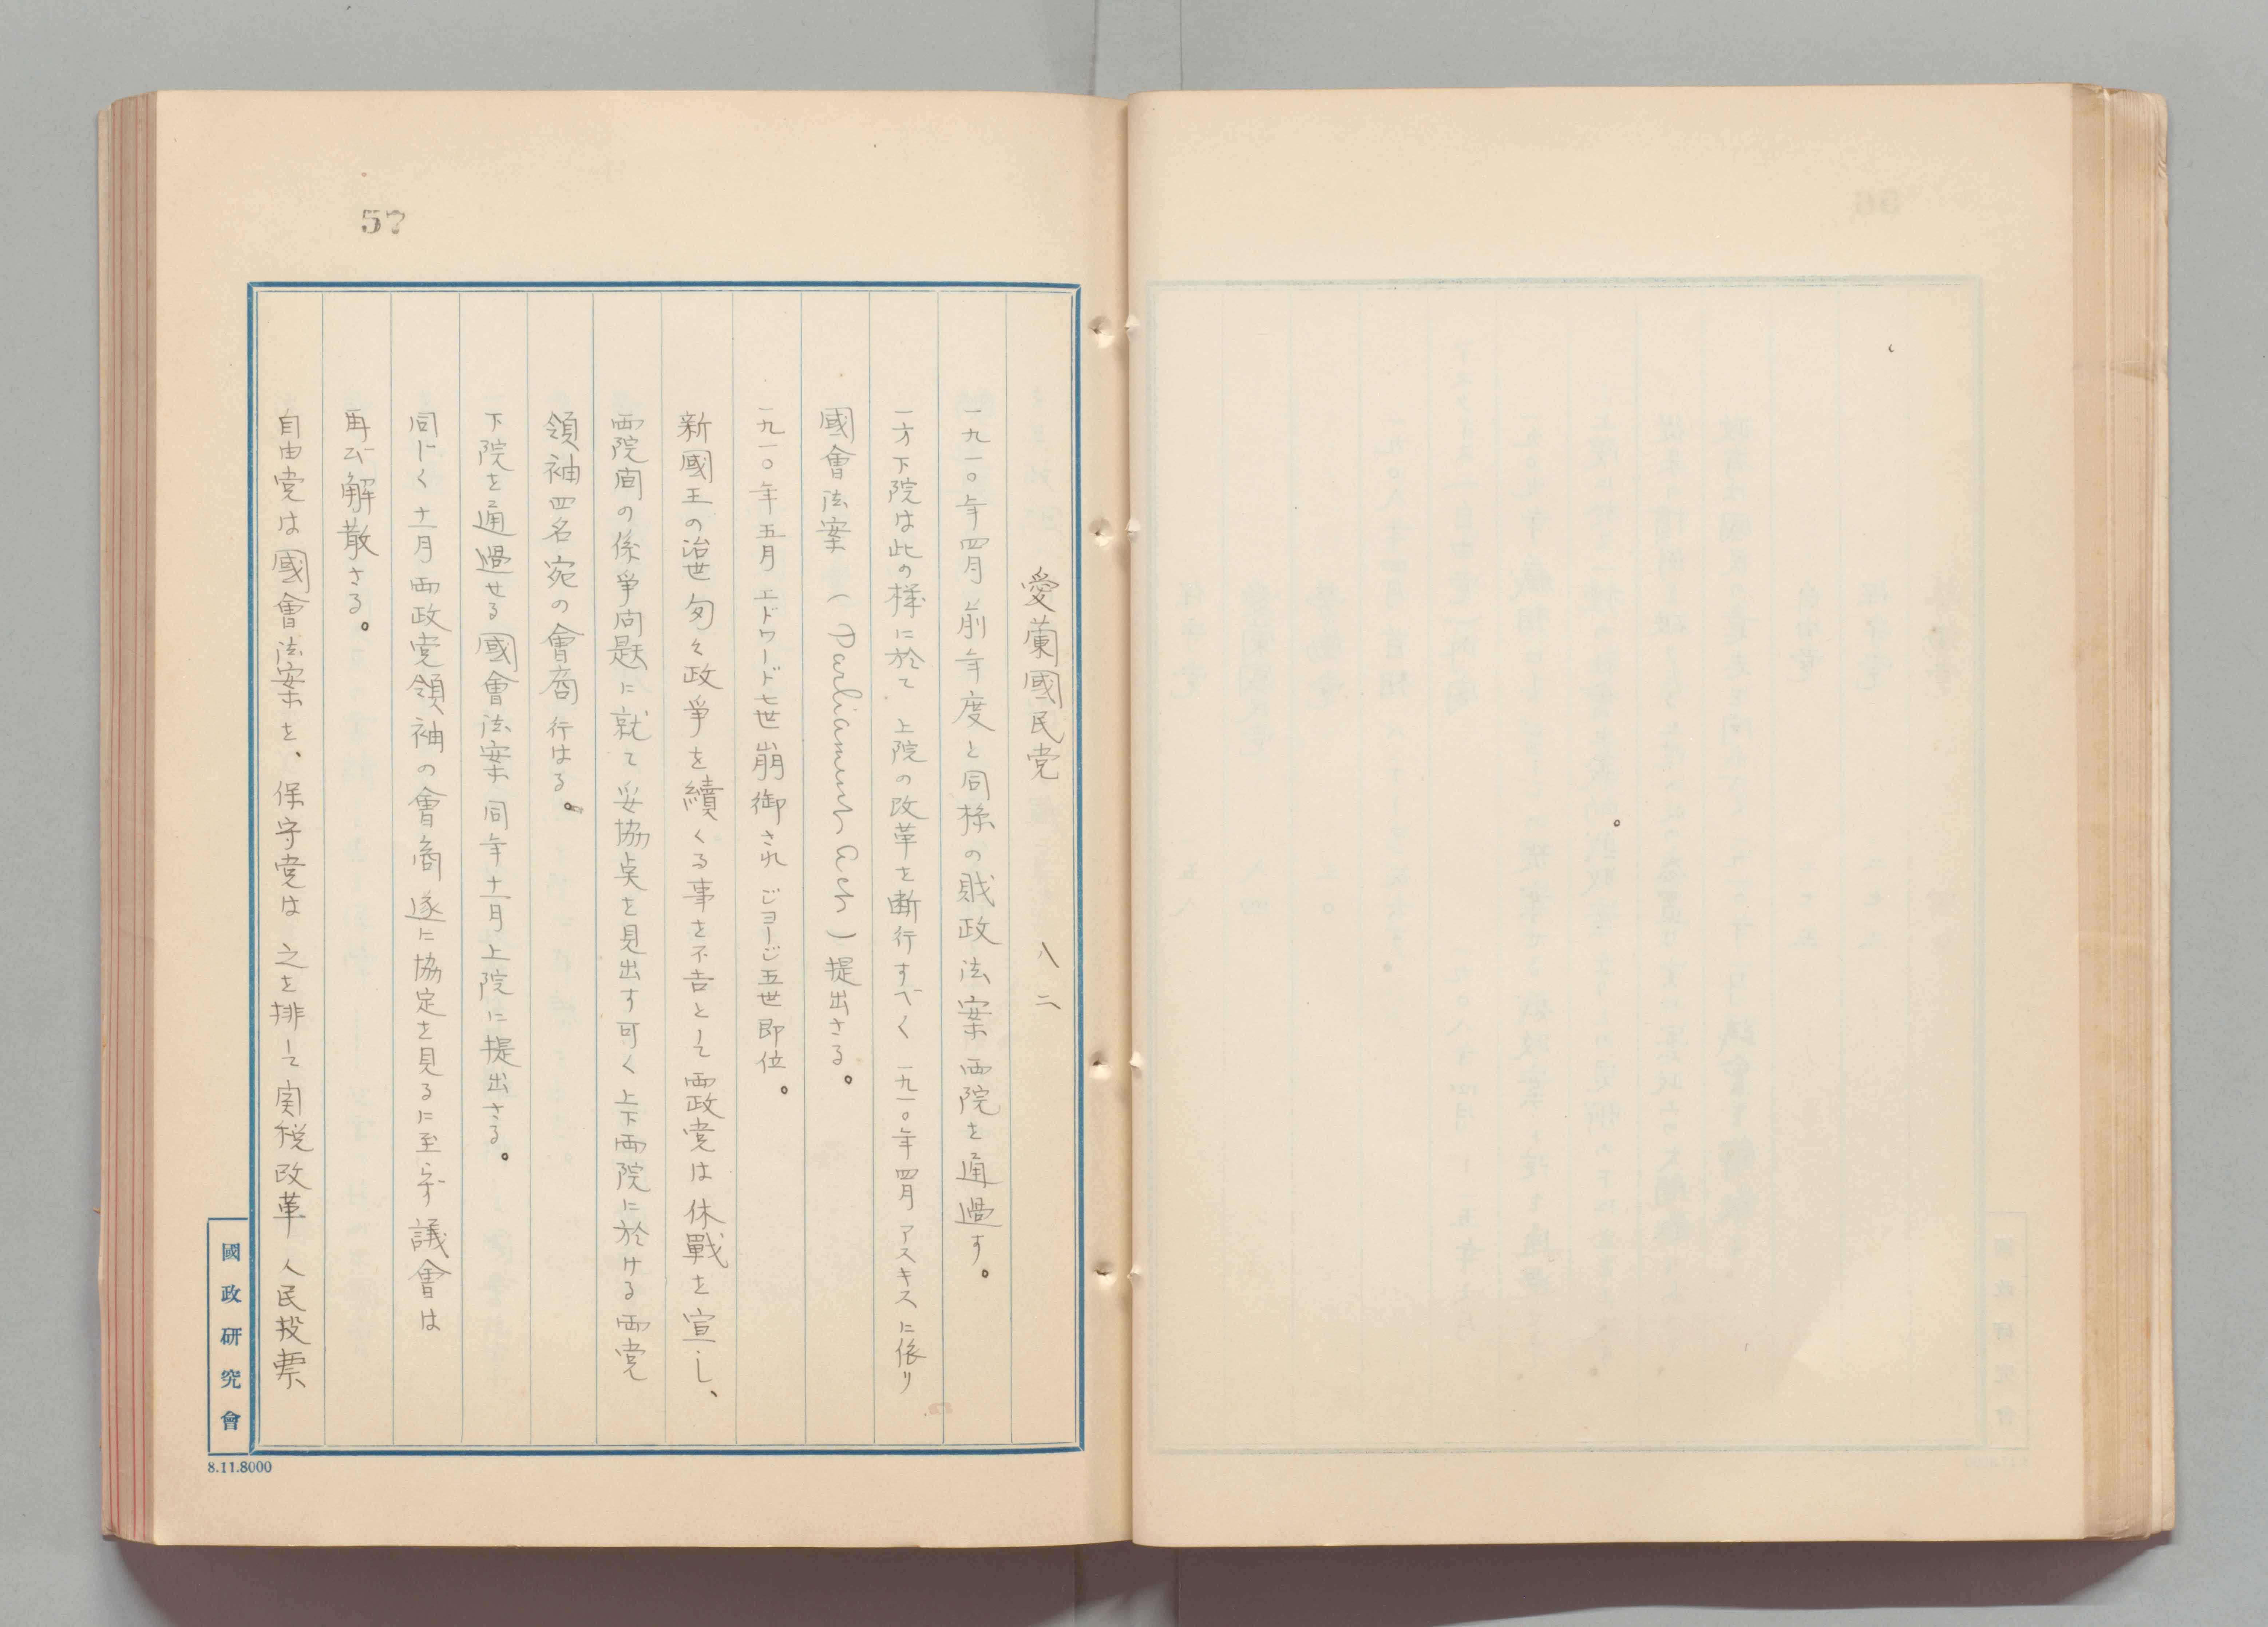 57
愛蘭國民党　八二
一九一〇年四月 前年度と同様の財政法案 両院を通過す。
一方下院は此の様に於て 上院の改革を断行すべく 一九一〇年四月 アスキスに依り
國會法案（Parliament Act）提出さる。
一九一〇年五月 エドワード七世崩御され ジョージ五世即位。
新國王の治世匆々政争を續くる事を不吉として両政党は休戰を宣し、
両院間の係争問題に就て妥協点を見出す可く上下両院に於ける両党
領袖四名宛の會商行はる。
下院を通過せる國會法案 同年十一月上院に提出さる。
同じく十一月両政党領袖の會商 遂に協定を見るに至らず 議會は
再び解散さる。
自由党は國會法案を、保守党は 之を排して 関税改革 人民投票
國政研究會
8.11.8000